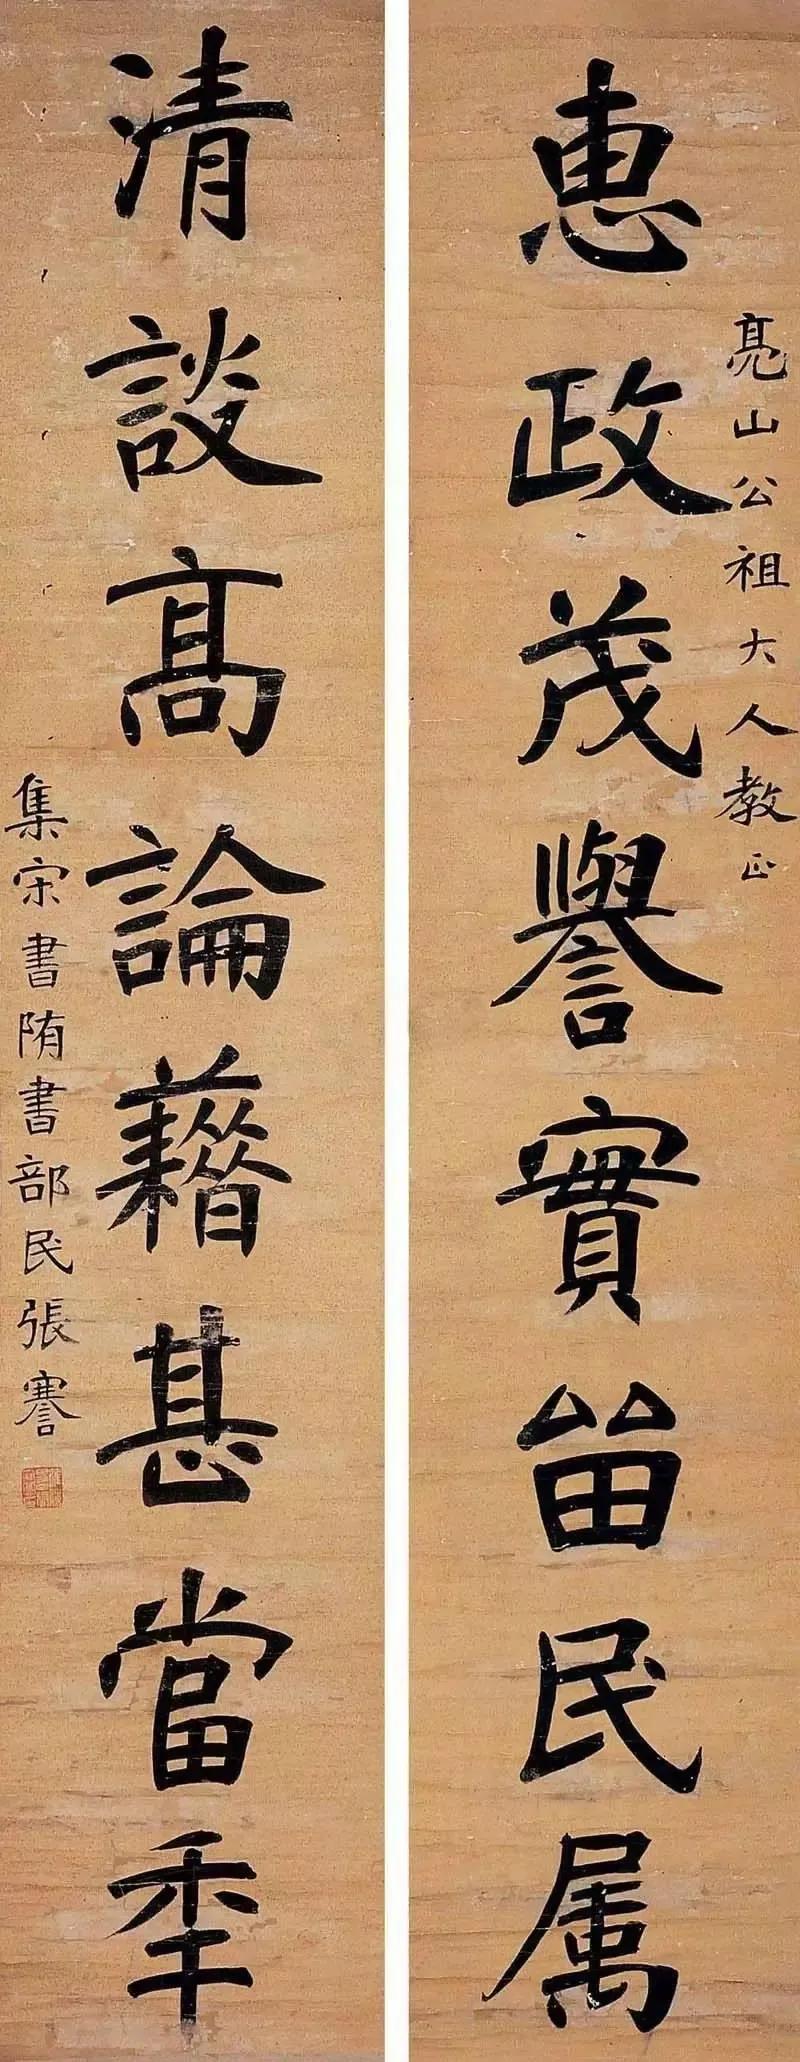 亮山公祖大人教正
惠政茂譽實㽞民属
清談髙論藉甚當秊
集宋書陏書部民張謇